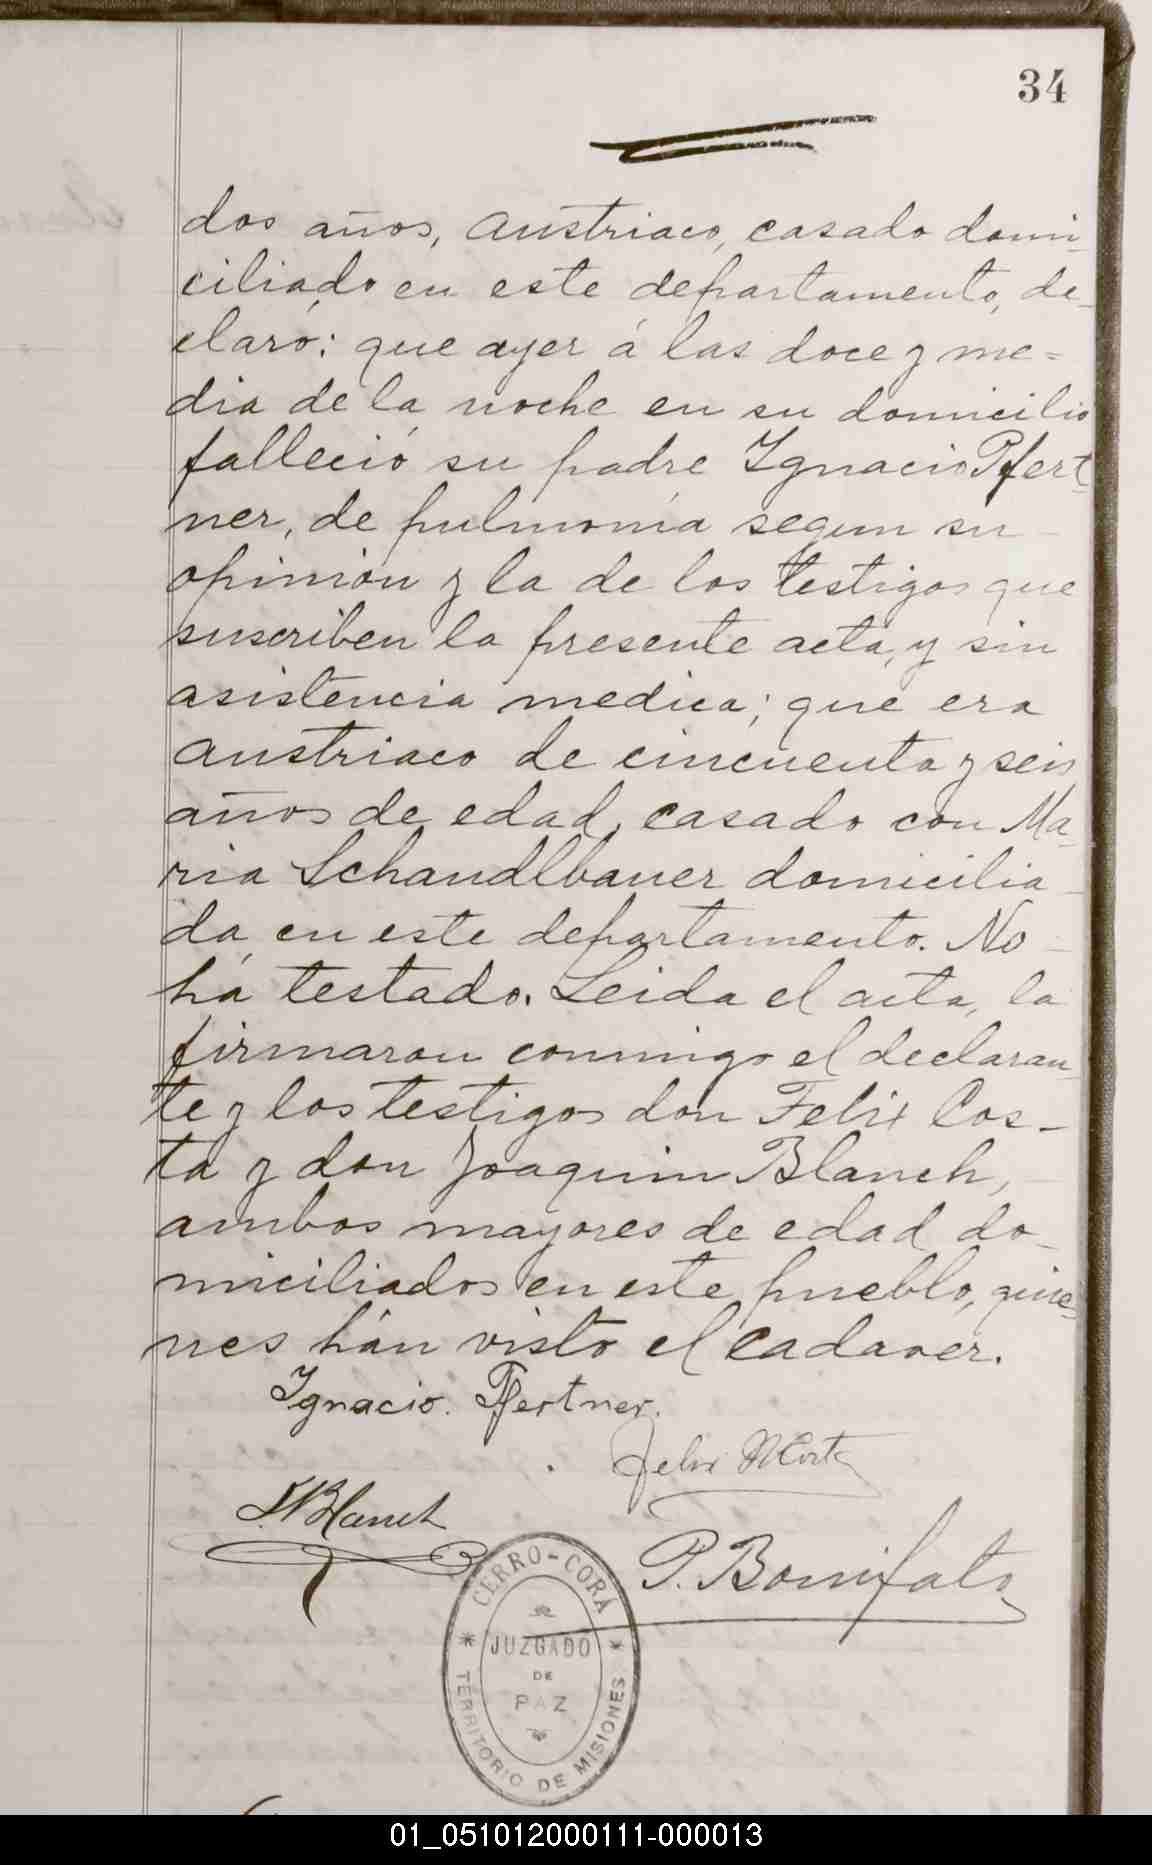 34
dos años, Austriaco, casado domi-
ciliado en este departamento, de-
claró: que ayer á las doce y me=
dia de la noche en su domicilio
falleció su padre Ignacio Pfert-
ner, de pulmonía segun su
opinión y la de los testigos que
suscriben la presente acta, y sin
asistencia medica; que era
Austriaco de cincuenta y seis
años de edad, casado con Ma-
ria Schandlbauer domicilia-
da en este departamento. No
há testado. Leida el acta, la
firmaron conmigo el declaran-
te y los testigos don Felix Cos-
ta y don Joaquin Blanch,
ambos mayores de edad do-
miciliados en este pueblo, quie-
nes hán visto el cadaver.
Ignacio. Pfertner.
Felix
Blanch
P. Bonifato
CERRO-CORÁ
JUZGADO
DE
PAZ
TERRITORIO DE MISIONES
01_051012000111-000013